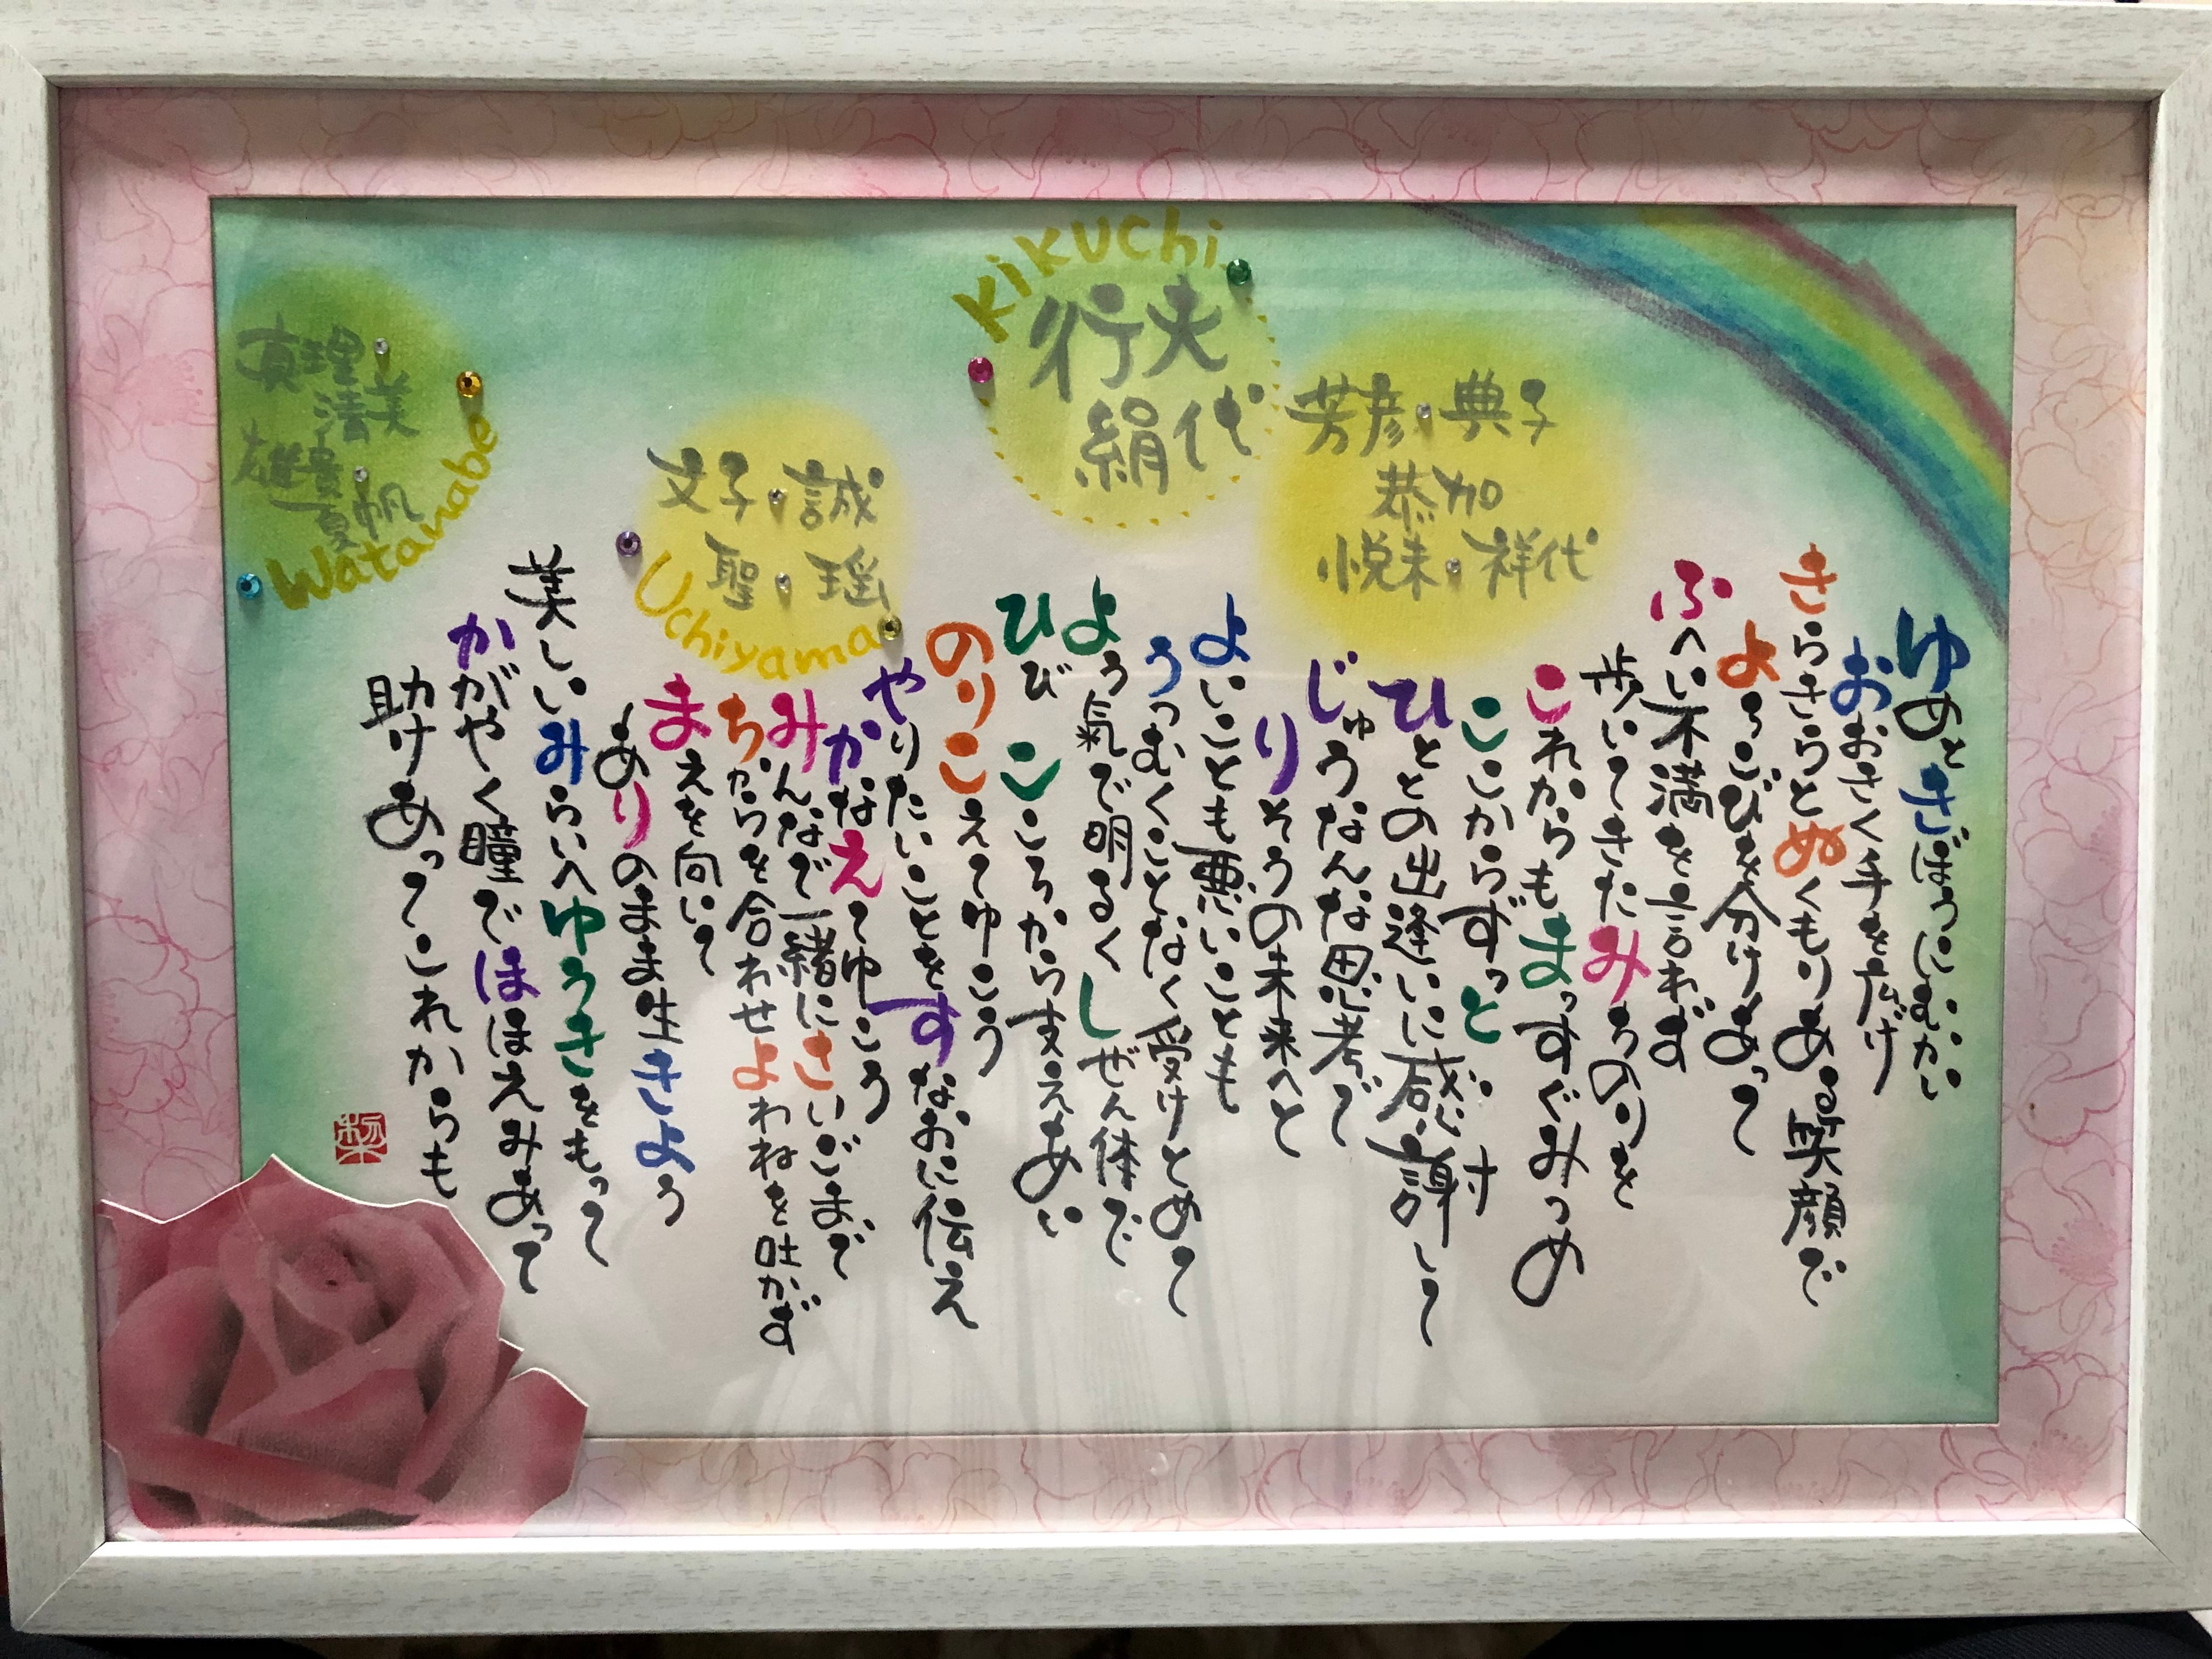 Kikuchi
行夫
絹代
芳彦・典子
恭加
悦未・祥代
文子・誠
聖・瑶
Uchiyama
真理
法美
雄貴
夏帆
Watanabe
ゆめときぼうにむかい
おおきく手を広げ
きらきらとぬくもりある笑顔で
よろこびを分けあって
ふへい不満を言わず
歩いてきたみちのりを
これからもまっすぐみつめ
ここからずっと
ひととの出逢いに感謝して
じゅうなんな思考で
りそうの未来へと
よいことも悪いことも
うつむくことなく受けとめて
よう氣で明るくしぜん体で
ひびこころから支えあい
のりこえてゆこう
やりたいことをすなおに伝え
かなえてゆこう
みんなで一緒にさいごまで
ちからを合わせよわねを吐かず
まえを向いて
ありのまま生きよう
美しいみらいへゆうきをもって
かがやく瞳でほほえみあって
助けあってこれからも